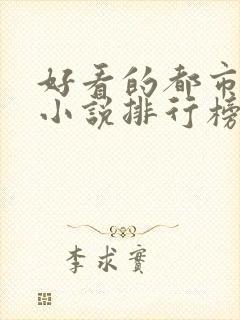 好看的都市
小说排行榜
李求实